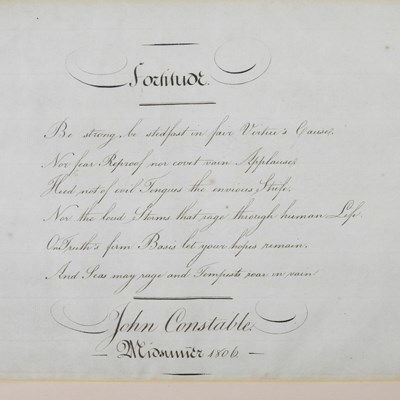 Fortitude.
Be strong, be stedfast in fair Vertue's Cause,
Nor fear Reproof nor covet vain Applause,
Heed not of evil Tongues the envious Strife,
Nor the loud Storms that rage through human Life
On Truth's firm Basis let your hopes remain,
And Seas may rage and Tempests roar in vain
John Constable.
— Midsumer 1806 —